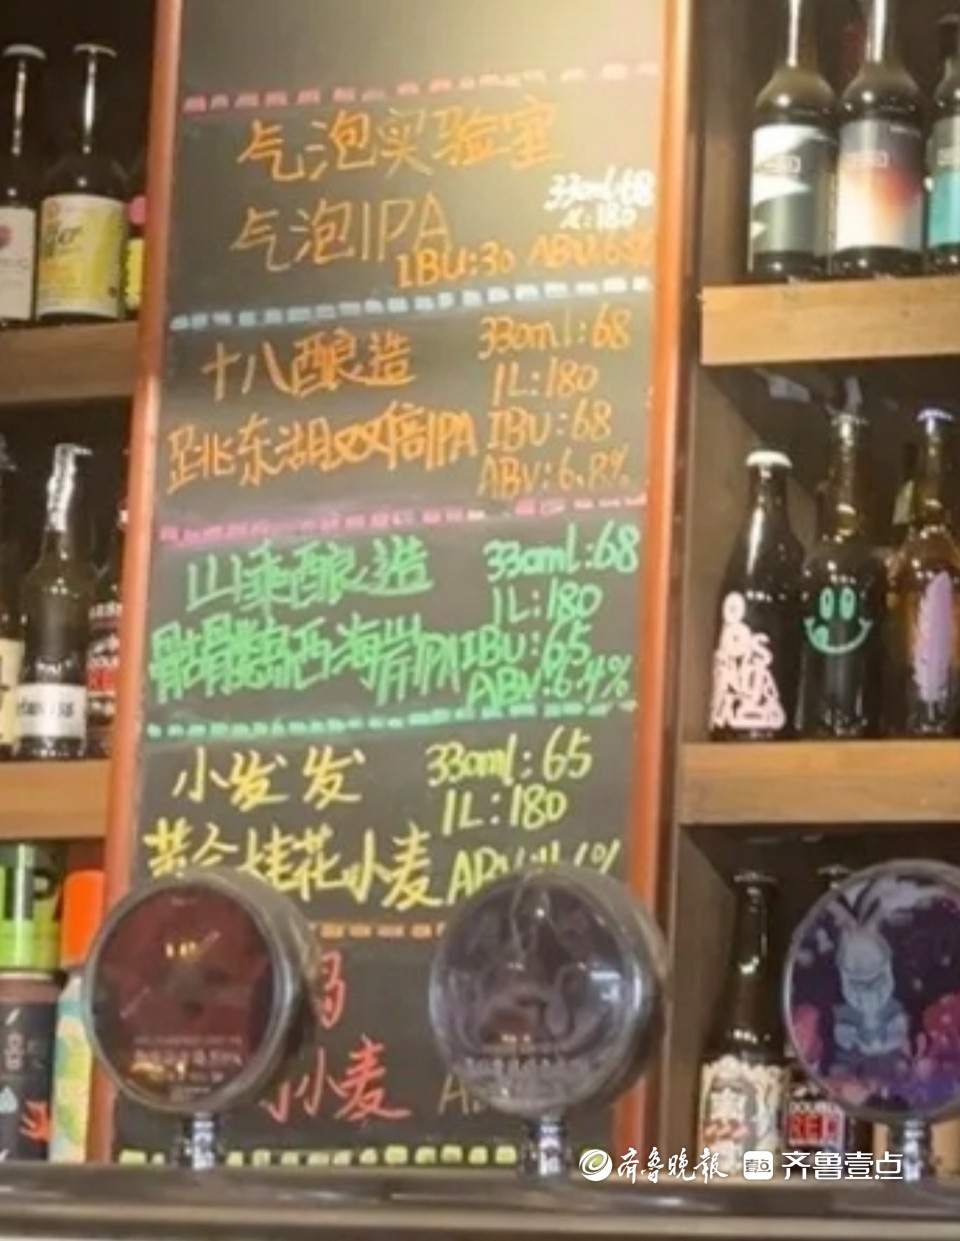 气泡实验室
330ml:68
1L:180
气泡IPA
IBU:30 ABV:6.8%
十八酿造
330ml:68
1L:180
跳东湖双倍IPA
IBU:68
ABV:6.8%
山乘酿造
330ml:68
1L:180
骷髅岛西海岸IPA
IBU:65
ABV:6.4%
小发发
330ml:65
1L:180
黄金桂花小麦
小麦
DOUBLE
RED
齐鲁晚报
壹点
齐鲁壹点